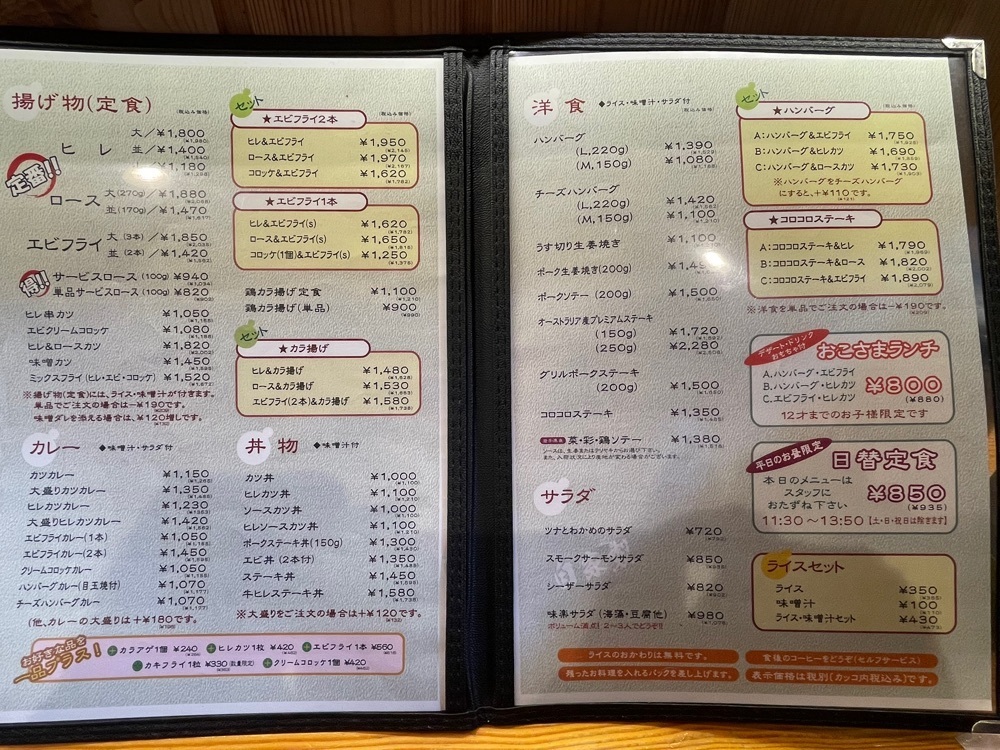 揚げ物(定食)
(税込み価格)
定番!!
ヒレ
大/¥1,800
(¥1,980)
並/¥1,400
(¥1,540)
¥1,180
ロース
大(270g)/¥1,880
並(170g)/¥1,470
(¥1,617)
エビフライ
大(3本)/¥1,850
(¥2,035)
並(2本)/¥1,420
(¥1,562)
得!!
サービスロース(100g) ¥940
(¥1,034)
単品サービスロース(100g) ¥820
(¥902)
ヒレ串カツ ¥1,050
(¥1,155)
エビクリームコロッケ ¥1,080
(¥1,188)
ヒレ&ロースカツ ¥1,820
(¥2,002)
味噌カツ ¥1,450
(¥1,595)
ミックスフライ(ヒレ・エビ・コロッケ) ¥1,520
(¥1,672)
※揚げ物(定食)には、ライス・味噌汁が付きます。
単品でご注文の場合は−¥190です。
味噌ダレを添える場合は、¥120増しです。
セット
(税込み価格)
★エビフライ2本
ヒレ&エビフライ ¥1,950
(¥2,145)
ロース&エビフライ ¥1,970
(¥2,167)
コロッケ&エビフライ ¥1,620
(¥1,782)
★エビフライ1本
ヒレ&エビフライ(s) ¥1,620
(¥1,782)
ロース&エビフライ(s) ¥1,650
(¥1,815)
コロッケ(1個)&エビフライ(s) ¥1,250
(¥1,375)
鶏カラ揚げ定食 ¥1,100
(¥1,210)
鶏カラ揚げ(単品) ¥900
(¥990)
セット
★カラ揚げ
ヒレ&カラ揚げ ¥1,480
(¥1,628)
ロース&カラ揚げ ¥1,530
(¥1,683)
エビフライ(2本)&カラ揚げ ¥1,580
(¥1,738)
カレー ◆味噌汁・サラダ付
カツカレー ¥1,150
(¥1,265)
大盛りカツカレー ¥1,350
(¥1,485)
ヒレカツカレー ¥1,230
(¥1,353)
大盛りヒレカツカレー ¥1,420
(¥1,562)
エビフライカレー(1本) ¥1,050
(¥1,155)
エビフライカレー(2本) ¥1,450
(¥1,595)
クリームコロッケカレー ¥1,050
(¥1,155)
ハンバーグカレー(目玉焼付) ¥1,070
(¥1,177)
チーズハンバーグカレー ¥1,070
(¥1,177)
(他、カレーの大盛りは+¥180です。
丼物 ◆味噌汁付
カツ丼 ¥1,000
(¥1,100)
ヒレカツ丼 ¥1,100
(¥1,210)
ソースカツ丼 ¥1,000
(¥1,100)
ヒレソースカツ丼 ¥1,100
(¥1,210)
ポークステーキ丼(150g) ¥1,300
(¥1,430)
エビ丼(2本付) ¥1,350
(¥1,485)
ステーキ丼 ¥1,450
(¥1,595)
牛ヒレステーキ丼 ¥1,580
(¥1,738)
※大盛りをご注文の場合は+¥120です。
(¥132)
お好きな品を
一品プラス!
カラアゲ1個 ¥240 ヒレカツ1粒 ¥420 エビフライ1本 ¥560
カキフライ1粒 ¥330(数量限定) クリームコロッケ1個 ¥420
洋食 ◆ライス・味噌汁・サラダ付
(税込み価格)
ハンバーグ
(L,220g) ¥1,390
(¥1,529)
(M,150g) ¥1,080
(¥1,188)
チーズハンバーグ
(L,220g) ¥1,420
(¥1,562)
(M,150g) ¥1,100
(¥1,210)
うす切り生姜焼き ¥1,100
ポーク生姜焼き(200g)
ポークソテー(200g) ¥1,500
(¥1,650)
オーストラリア産プレミアムステーキ
(150g) ¥1,720
(¥1,892)
(250g) ¥2,280
(¥2,508)
グリルポークステーキ
(200g) ¥1,500
(¥1,650)
コロコロステーキ ¥1,350
(¥1,485)
菜・彩・鶏ソテー ¥1,380
(¥1,518)
サラダ
ツナとわかめのサラダ ¥720
(¥792)
スモークサーモンサラダ ¥850
(¥935)
シーザーサラダ ¥820
(¥902)
味楽サラダ(海藻・豆腐他) ¥980
(¥1,078)
ボリューム満点!2〜3人でどうぞ!!
セット
(税込み価格)
★ハンバーグ
A:ハンバーグ&エビフライ ¥1,750
(¥1,925)
B:ハンバーグ&ヒレカツ ¥1,690
(¥1,859)
C:ハンバーグ&ロースカツ ¥1,730
(¥1,903)
※ハンバーグをチーズハンバーグ
にすると、+¥110です。
(¥121)
★コロコロステーキ
A:コロコロステーキ&ヒレ ¥1,790
(¥1,969)
B:コロコロステーキ&ロース ¥1,820
(¥2,002)
C:コロコロステーキ&エビフライ ¥1,890
(¥2,079)
※洋食を単品でご注文の場合は−¥190です。
(¥209)
デザート・ドリンク
おもちゃ付
おこさまランチ
A.ハンバーグ・エビフライ
B.ハンバーグ・ヒレカツ
C.エビフライ・ヒレカツ
¥800
(¥880)
12才までのお子様限定です
平日のお昼限定
日替定食
本日のメニューは
スタッフに
おたずね下さい
¥850
(¥935)
11:30〜13:50 [土・日・祝日は除きます]
ライスセット
ライス ¥350
(¥385)
味噌汁 ¥100
(¥110)
ライス・味噌汁セット ¥430
(¥473)
ライスのおかわりは無料です。
食後のコーヒーをどうぞ(セルフサービス)
残ったお料理を入れるパックを差し上げます。
表示価格は税別(カッコ内税込み)です。